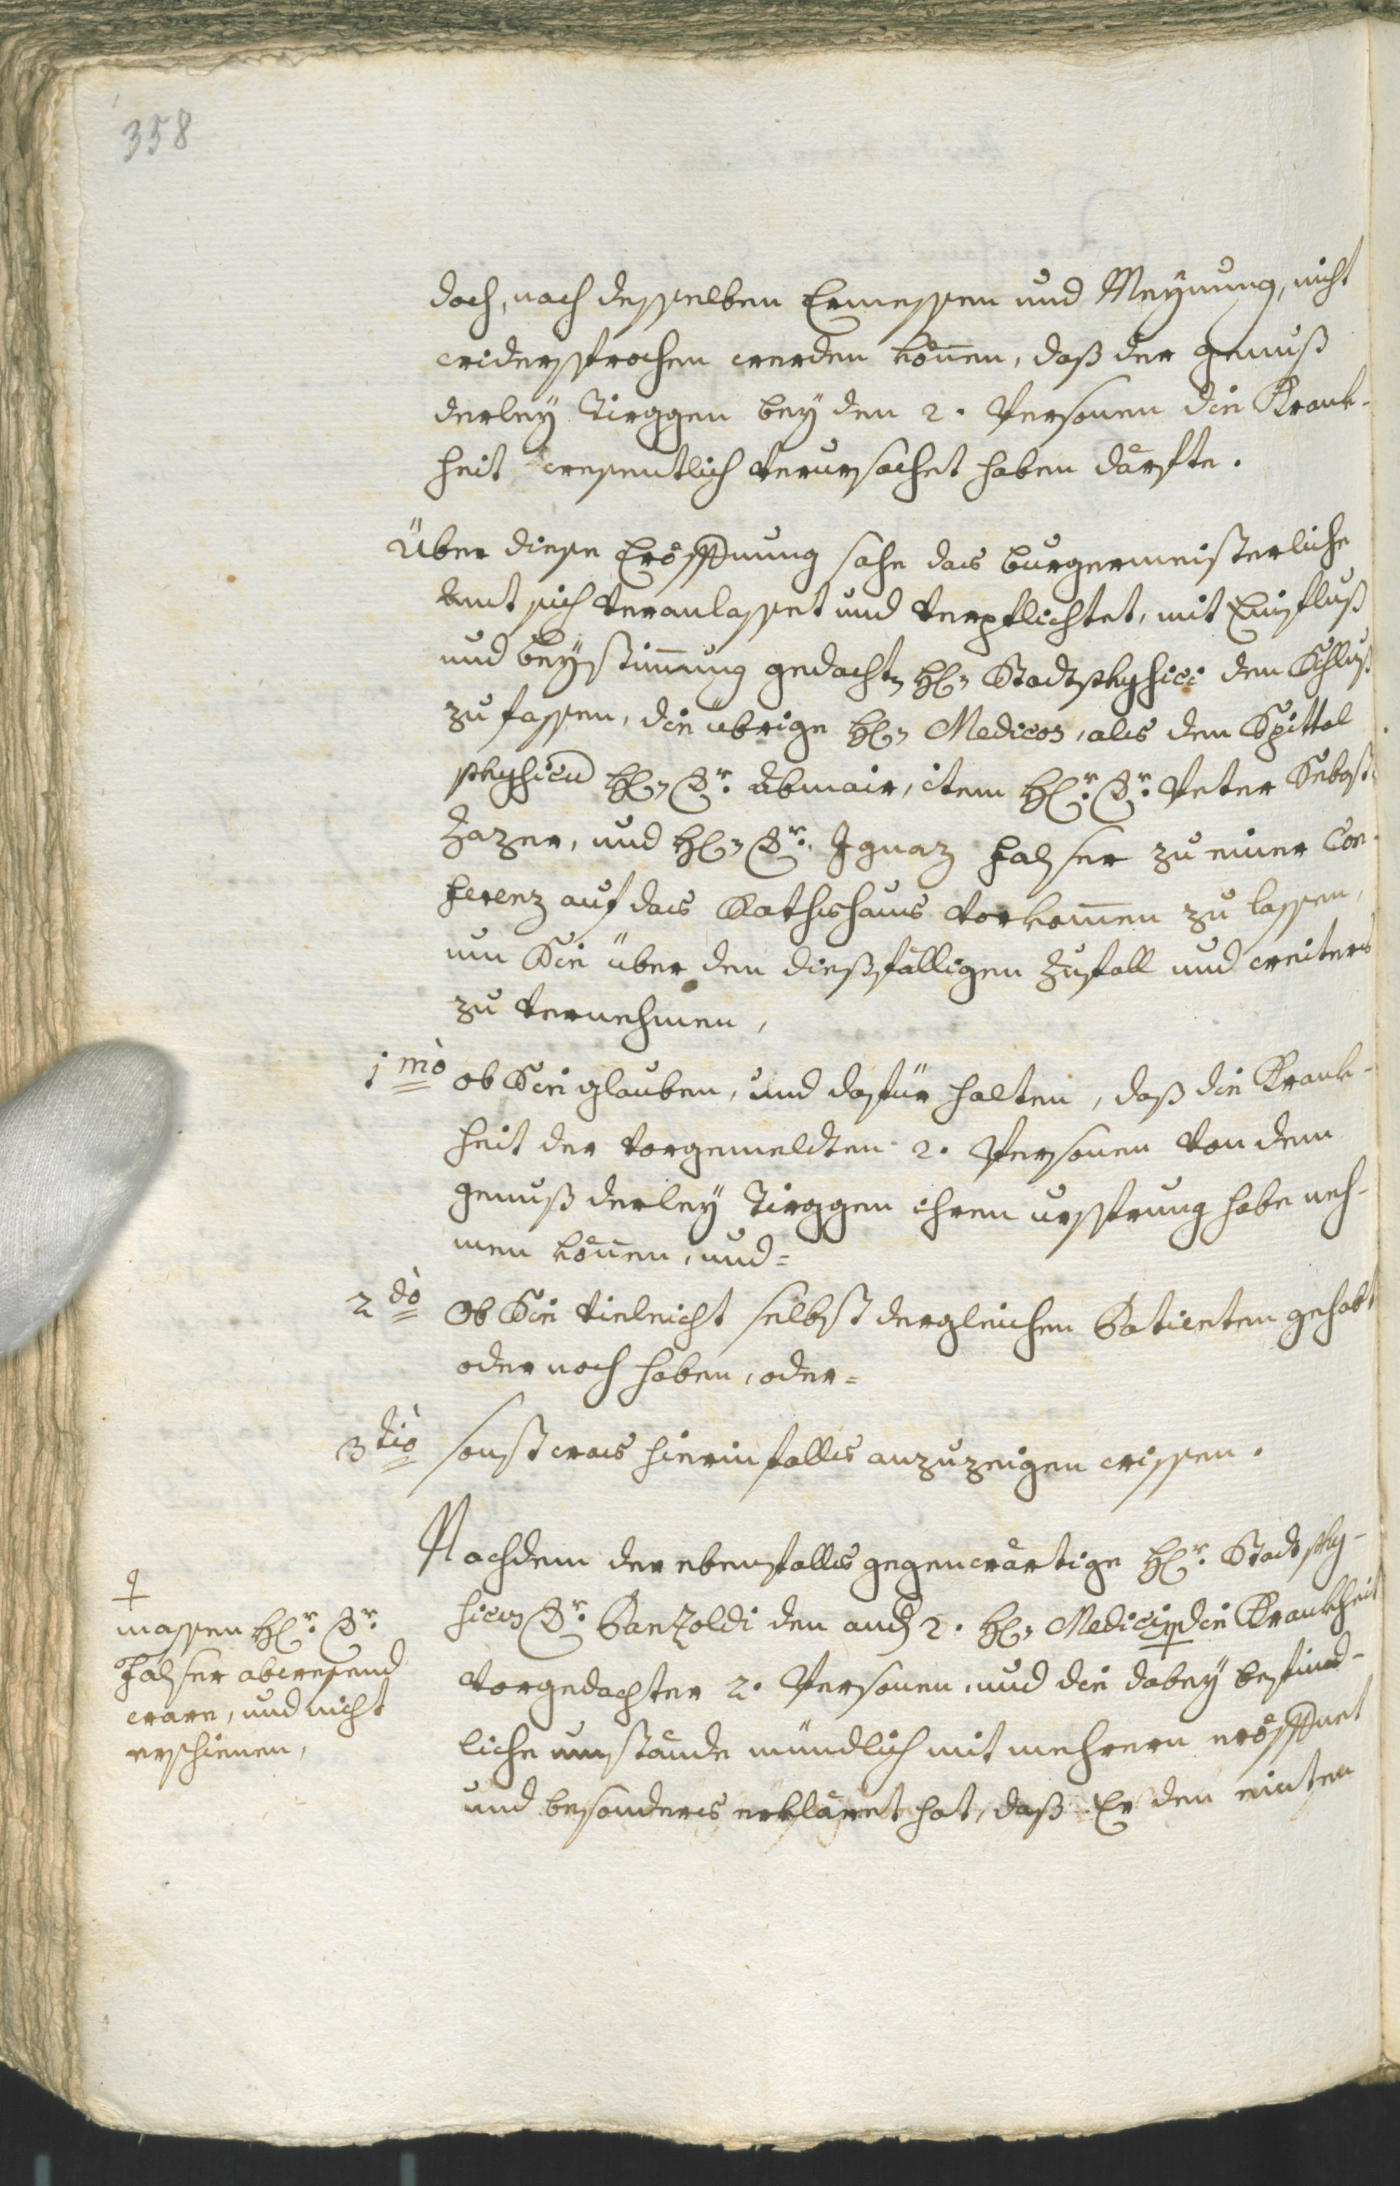 358
doch, nach desselben Ermessen und Meÿnung, nicht
widersprochen werden könen, daß der genuß
derleÿ Tirggen beÿ den 2. Personen die Krank-
heit wesentlich verursachet haben därfte.
Über diese Eröffnung sahe das burgermeisterliche
Amt sich veranlasset und verpflichtet, mit Einfluß
und beÿstimung gedacht H: Stadtphysici den Schluß
zu fassen, die übrige H: Medicos, als den Spittal
physicu H: Dr. Abmair, item H:r Dr. Peter Sebast:
Zazer, und H: Dr. Ignaz Halser zu einer Con-
ferenz auf das Rathshaus vorkomen zu lassen,
um Sie über den dießfälligen Zufall und weiters
zu vernehmen,
1mò ob Sie glauben, und dafür halten, daß die Krank-
heit der vorgemeldten 2. Personen von dem
genuß derleÿ Tirggen ihren ursprung habe neh-
men könen, und=
2dò Ob Sie vieleicht selbst dergleichen Patienten gehabt
oder noch haben, oder=
3tiò sonst was hierinfalls anzuzeigen wissen.
Nachdem der ebenfalls gegenwärtige H:r Stadtphy-
sicus Dr. Panzoldi den and 2. H: Medicis die Krankheit
vorgedachter 2. Personen, und die dabeÿ befind-
liche umstände mündlich mit mehrern eröffnet
und besonders erkläret hat, daß Er den einten
massen H:r Dr.
Halser abwesend
ware, und nicht
erschienen,